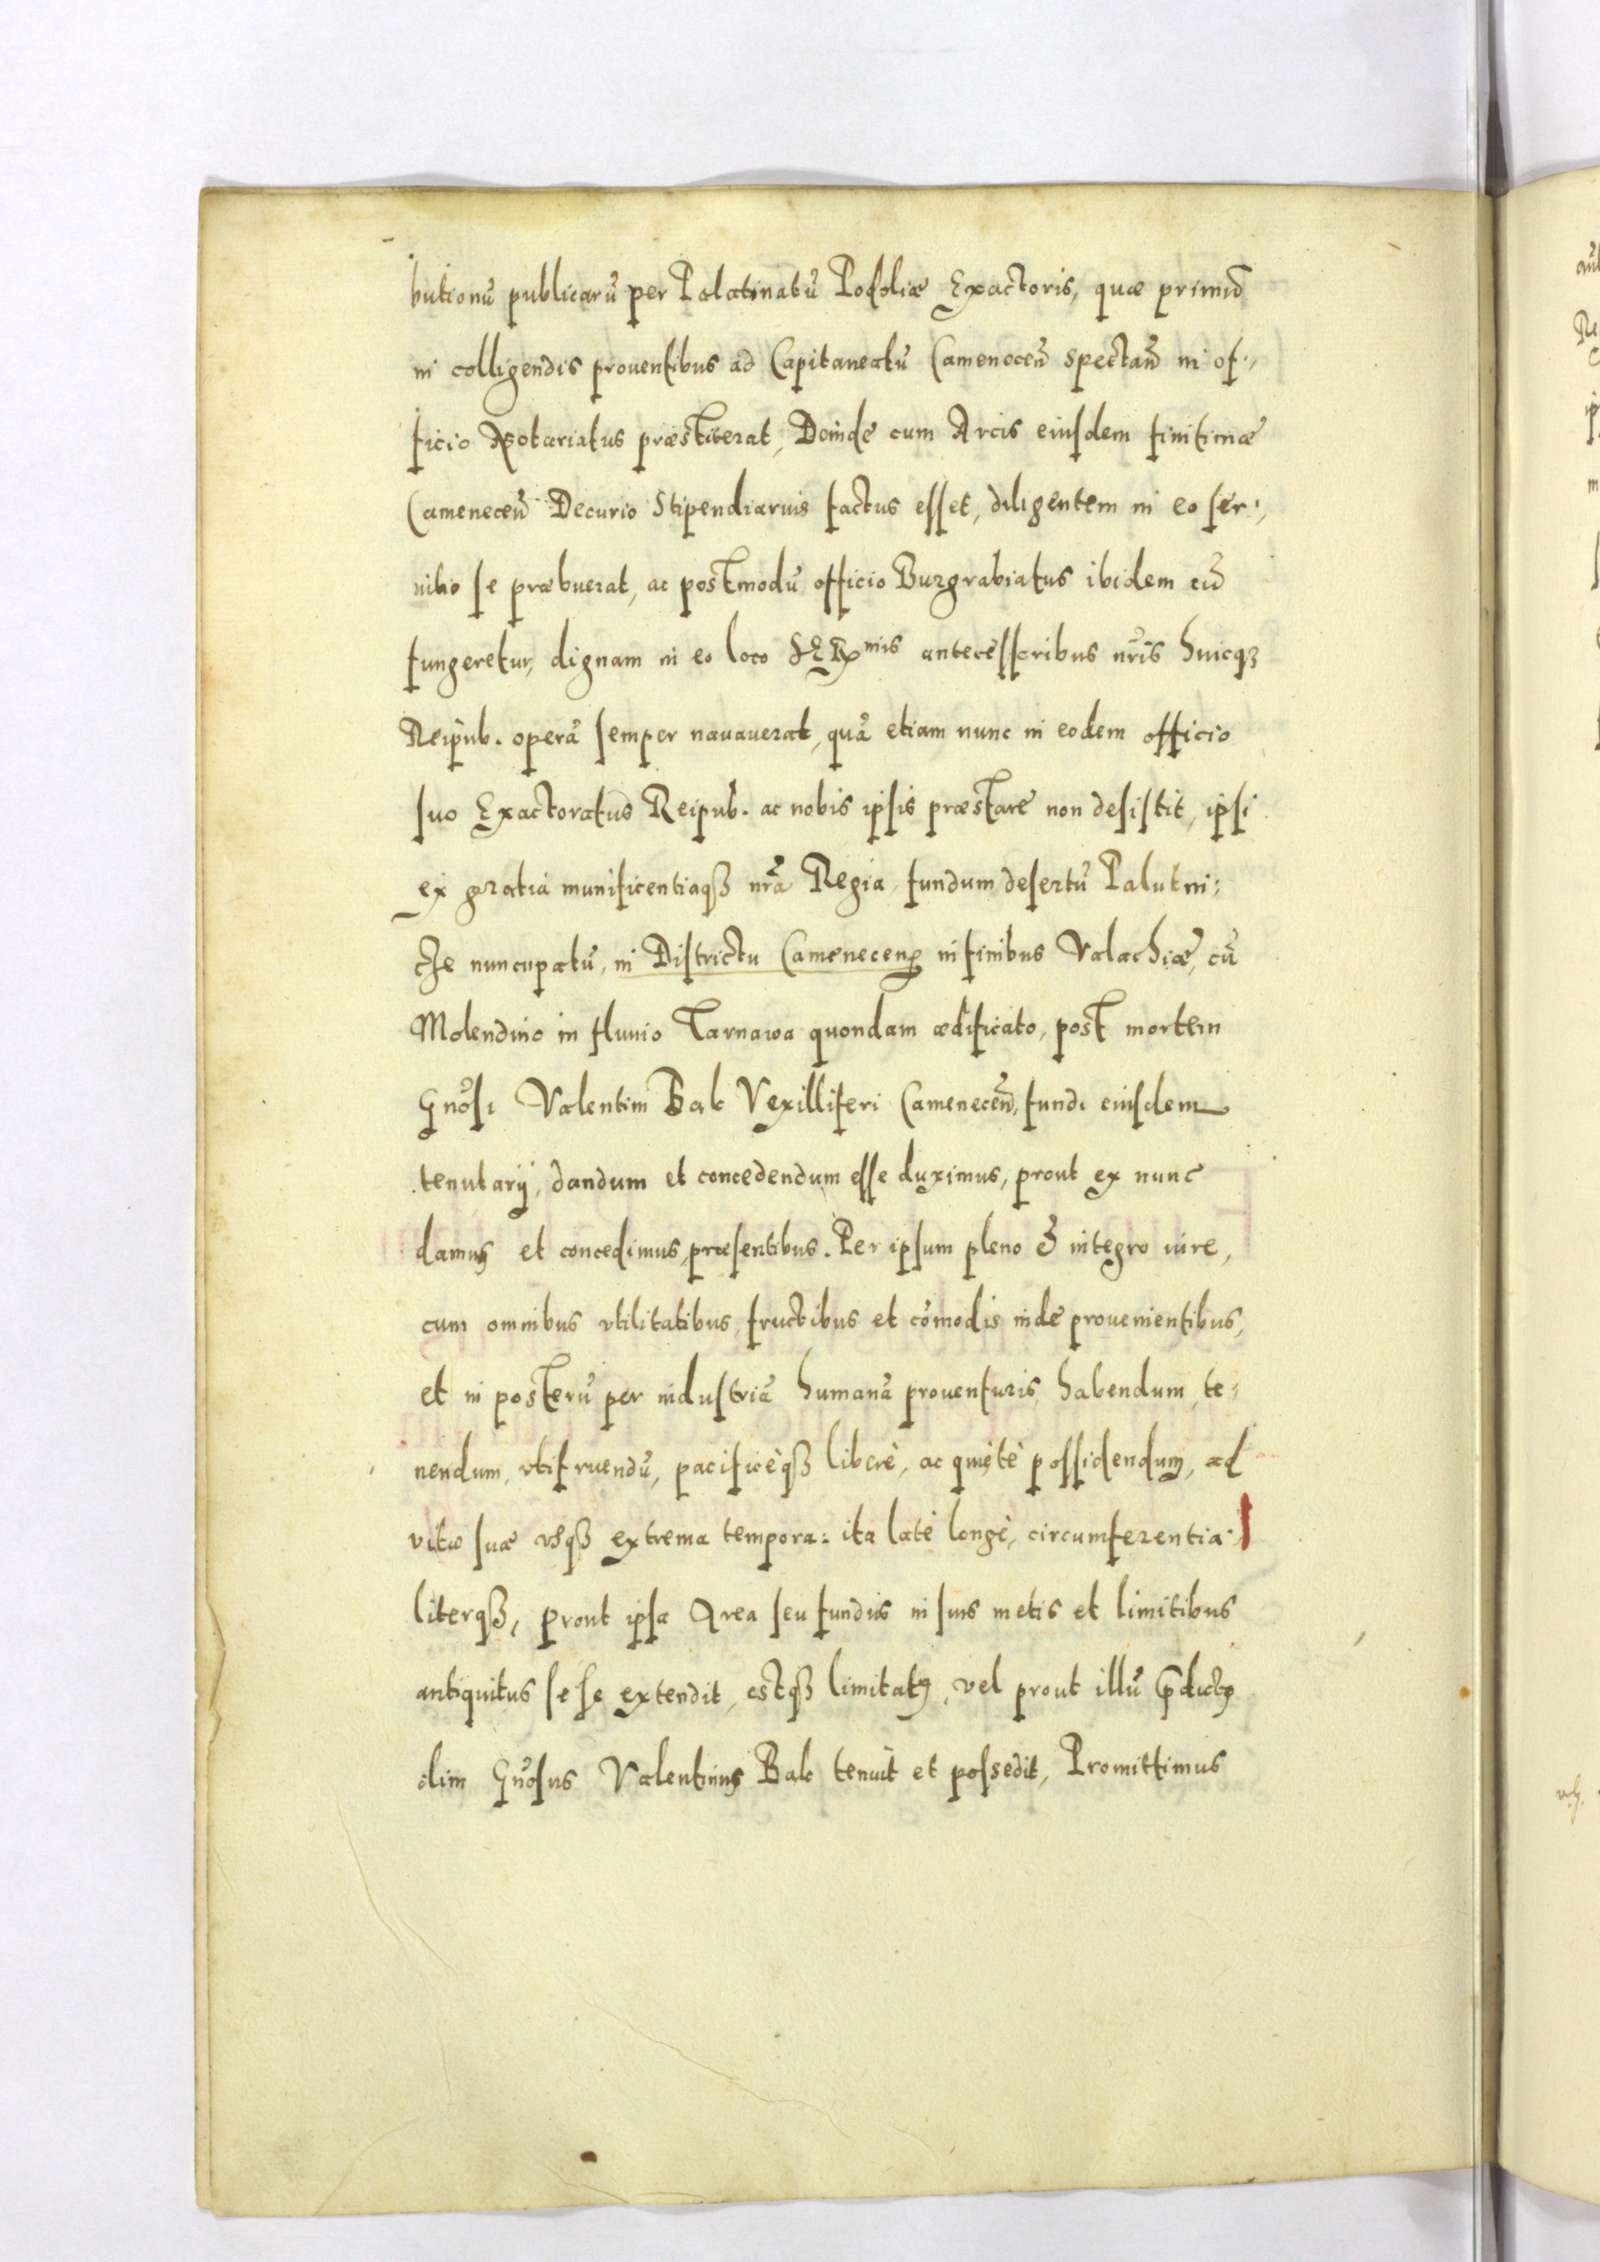 butionũ publicarũ per Palatinatũ Podoliæ Exactoris, quæ primũ
in colligendis prouentibus ad Capitaneatũ Camenecen̄ spectan̄ in of-,
ficio Notariatus præstiterat, Deinde cum Arcis eiusdem finitimæ
Camenecen̄ Decurio Stipendiarius factus esset, diligentem in eo ser-,
uitio se præbuerat, ac postmodũ officio Burgrabiatus ibidem cũ
fungeretur, dignam in eo loco SERmis antecessoribus nr̃is huicq3
Reipub. operã semper nauauerat, quã etiam nunc in eodem officio
suo Exactoratus Reipub. ac nobis ipsis præstare non desistit, ipsi
ex gratia munificentiaqꝫ nr̃a Regia, fundum desertũ Palutni-
cze nuncupatũ, in Districtu Camenecen̄ in finibus Valachiæ, cũ
Molendino in fluuio Tarnawa quondam ædificato, post mortem
Gnõsi Valentini Bab Vexilliferi Camenecen̄, fundi eiusdem
tenutarij, dandum et concedendum esse duximus, prout ex nunc
damus et concedimus præsentibus. Per ipsum pleno & integro iure,
cum omnibus vtilitatibus, fructibus et cõmodis inde prouenientibus,
et in posterũ per industriã humanã prouenturis, habendum, te-
nendum, vtifruendũ, pacificèqꝫ liberè, ac quietè possidendum, ad
vitæ suæ vsqꝫ extrema tempora: ita latè longè, circumferentia-
literqꝫ, prout ipsa Area seu fundus in suis metis et limitibus
antiquitus sese extendit, estqꝫ limitatꝰ, vel prout illũ p̄dictꝰ
olim Gnõsus Valentinus Bab tenuit et possedit, Promittimus